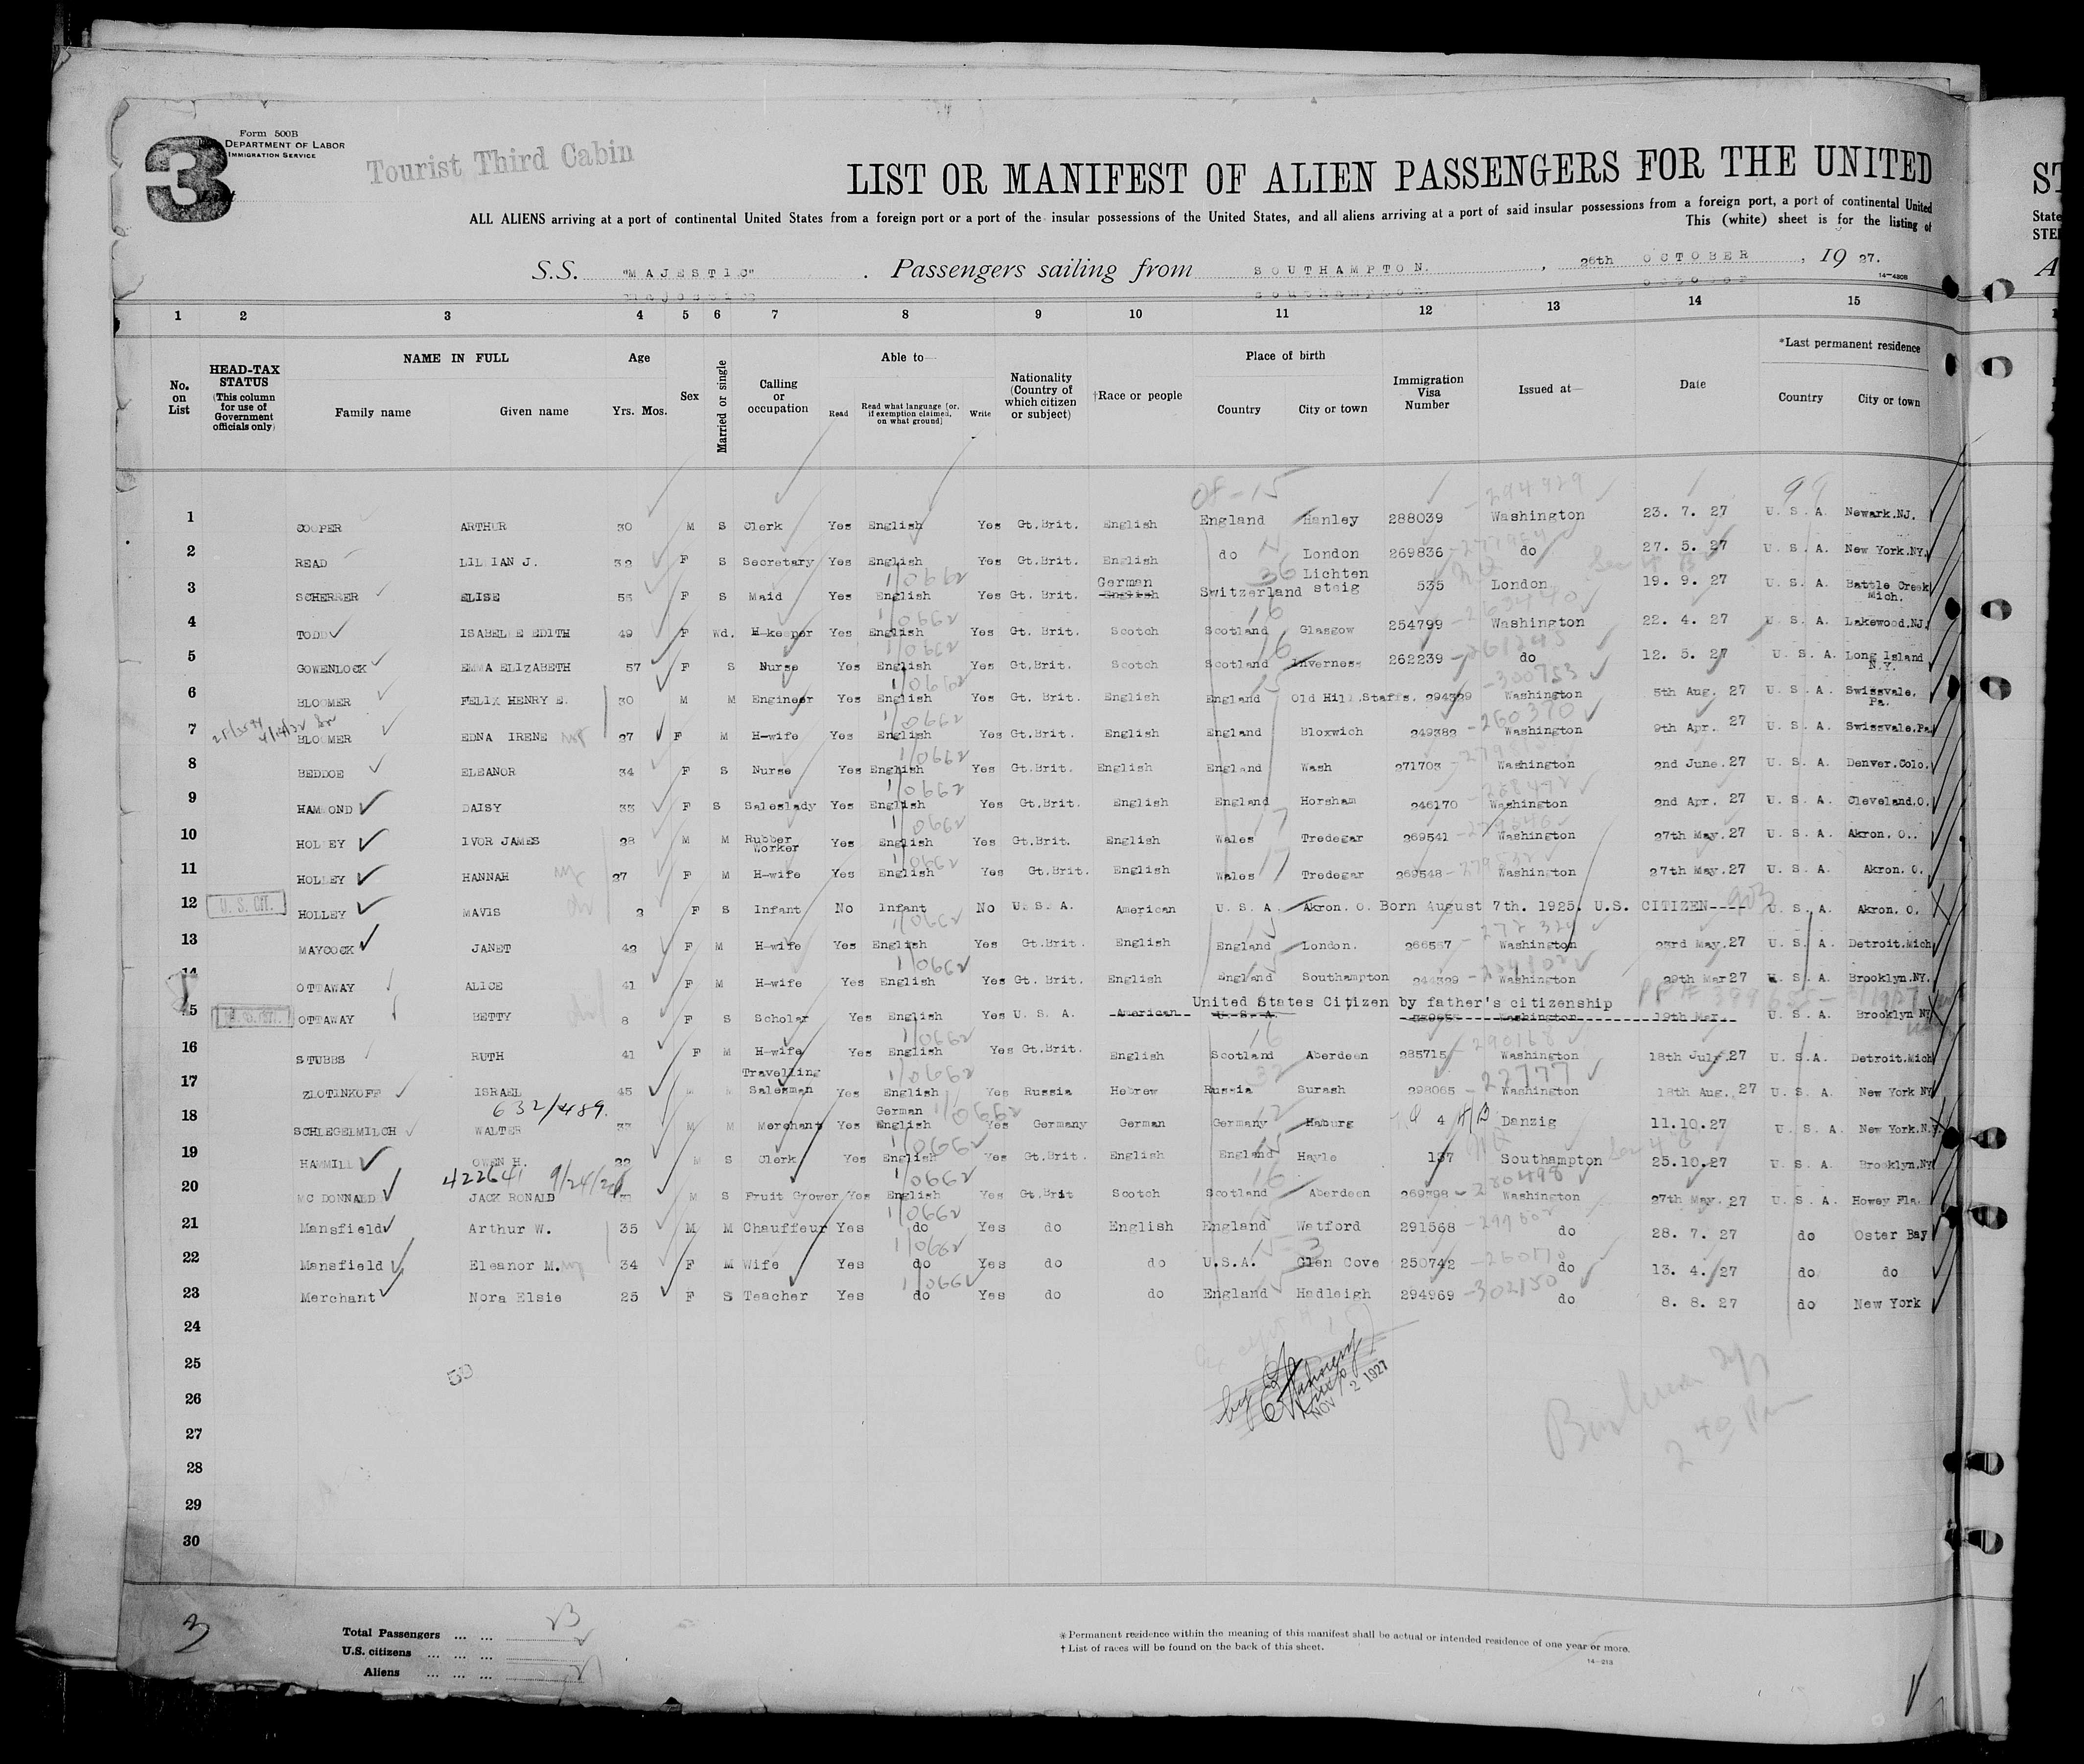 3
Form 500B
DEPARTMENT OF LABOR
IMMIGRATION SERVICE
Tourist Third Cabin
LIST OR MANIFEST OF ALIEN PASSENGERS FOR THE UNITED
ALL ALIENS arriving at a port of continental United States from a foreign port or a port of the insular possessions of the United States, and all aliens arriving at a port of said insular possessions from a foreign port, a port of continental United
This (white) sheet is for the listing of
S.S. "MAJESTIC" Passengers sailing from SOUTHAMPTON. , 26th OCTOBER , 19 27.
14-430B
1 2 3 4 5 6 7 8 9 10 11 12 13 14 15
No. on List
HEAD-TAX STATUS (This column for use of Government officials only)
NAME IN FULL Family name Given name
Age Yrs. Mos.
Sex
Married or single
Calling or occupation
Able to— Read Read what language (or, if exemption claimed, on what ground) Write
Nationality (Country of which citizen or subject)
†Race or people
Place of birth Country City or town
Immigration Visa Number
Issued at—
Date
*Last permanent residence Country City or town
08-15
1 COOPER ARTHUR 30 M S Clerk Yes English Yes Gt.Brit. English England Hanley 288039 -294929 Washington 23. 7. 27 U. S. A. Newark.NJ.
2 READ LILLIAN J. 32 F S Secretary Yes English Yes Gt.Brit. English do London 269836 do 27. 5. 27 U. S. A. New York.NY.
3 SCHERRER ELISE 55 F S Maid Yes English Yes Gt. Brit. German English Switzerland Lichten steig 535 London 19. 9. 27 U. S. A. Battle Creek Mich.
4 TODD ISABELLE EDITH 49 F Wd. H-keeper Yes English Yes Gt. Brit. Scotch Scotland Glasgow 254799 Washington 22. 4. 27 U. S. A. Lakewood.NJ.
5 GOWENLOCK EMMA ELIZABETH 57 F S Nurse Yes English Yes Gt.Brit. Scotch Scotland Inverness 262239 -261245 do 12. 5. 27 U. S. A. Long Island N.Y.
6 BLOOMER FELIX HENRY E. 30 M M Engineer Yes English Yes Gt. Brit. English England Old Hill.Staffs. 294329 -300753 Washington 5th Aug. 27 U. S. A. Swissvale. Pa.
7 BLOOMER EDNA IRENE 27 F M H-wife Yes English Yes Gt.Brit. English England Bloxwich 249382 -260370 Washington 9th Apr. 27 U. S. A. Swissvale.Pa.
8 BEDDOE ELEANOR 34 F S Nurse Yes English Yes Gt.Brit. English England Wash 271703 Washington 2nd June. 27 U. S. A. Denver.Colo.
9 HAMMOND DAISY 33 F S Saleslady Yes English Yes Gt.Brit. English England Horsham 246170 Washington 2nd Apr. 27 U. S. A. Cleveland.O.
10 HOLLEY IVOR JAMES 28 M M Rubber Worker Yes English Yes Gt.Brit. English Wales Tredegar 269541 Washington 27th May. 27 U. S. A. Akron. O..
11 HOLLEY HANNAH 27 F M H-wife Yes English Yes Gt.Brit. English Wales Tredegar 269548 Washington 27th May. 27 U. S. A. Akron. O.
12 HOLLEY MAVIS 2 F S Infant No Infant No U. S. A. American U. S. A. Akron. O. Born August 7th. 1925. U.S. CITIZEN---- U. S. A. Akron. O.
13 MAYCOCK JANET 42 F M H-wife Yes English Yes Gt.Brit. English England London. 266567 Washington 23rd May. 27 U. S. A. Detroit.Mich
14 OTTAWAY ALICE 41 F M H-wife Yes English Yes Gt. Brit. English England Southampton 244329 Washington 29th Mar 27 U. S. A. Brooklyn.NY.
United States Citizen by father's citizenship
15 OTTAWAY BETTY 8 F S Scholar Yes English Yes U. S. A. American U. S. A. Washington 19th Mar. U. S. A. Brooklyn NY
16 STUBBS RUTH 41 F M H-wife Yes English Yes Gt.Brit. English Scotland Aberdeen 285715 -290168 Washington 18th July. 27 U. S.A. Detroit.Mich
17 ZLOTINKOFF ISRAEL 45 M M Travelling Salesman Yes English Yes Russia Hebrew Russia Surash 298065 -22777 Washington 18th Aug. 27 U. S. A. New York NY
632/489.
18 SCHLEGELMILCH WALTER 37 M M Merchant Yes German English Yes Germany German Germany Haburg 4 Danzig 11.10.27 U. S. A. New York.N.Y.
19 HAMMILL OWEN H. 22 M S Clerk Yes English Yes Gt.Brit. English England Hayle 137 Southampton 25.10.27 U. S. A. Brooklyn.NY
422641
20 MC DONNALD JACK RONALD 31 M S Fruit Grower Yes English Yes Gt.Brit Scotch Scotland Aberdeen 269398 -280498 Washington 27th May. 27 U. S. A. Howey Fla.
21 Mansfield Arthur W. 35 M M Chauffeur Yes do Yes do English England Watford 291568 do 28. 7. 27 do Oster Bay
22 Mansfield Eleanor M. 34 F M Wife Yes do Yes do do U.S.A. Glen Cove 250742 do 13. 4. 27 do do
23 Merchant Nora Elsie 25 F S Teacher Yes do Yes do do England Hadleigh 294969 -302150 do 8. 8. 27 do New York
24
25
26
27
28
29
30
NOV 2 1927
3
Total Passengers ... ... 23
U.S. citizens ... ... ...
Aliens ... ... ... 21
*Permanent residence within the meaning of this manifest shall be actual or intended residence of one year or more.
†List of races will be found on the back of this sheet.
14-213